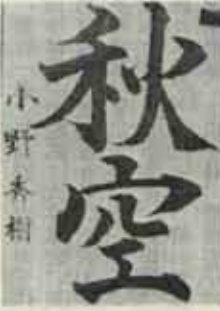 秋空
小野秀樹